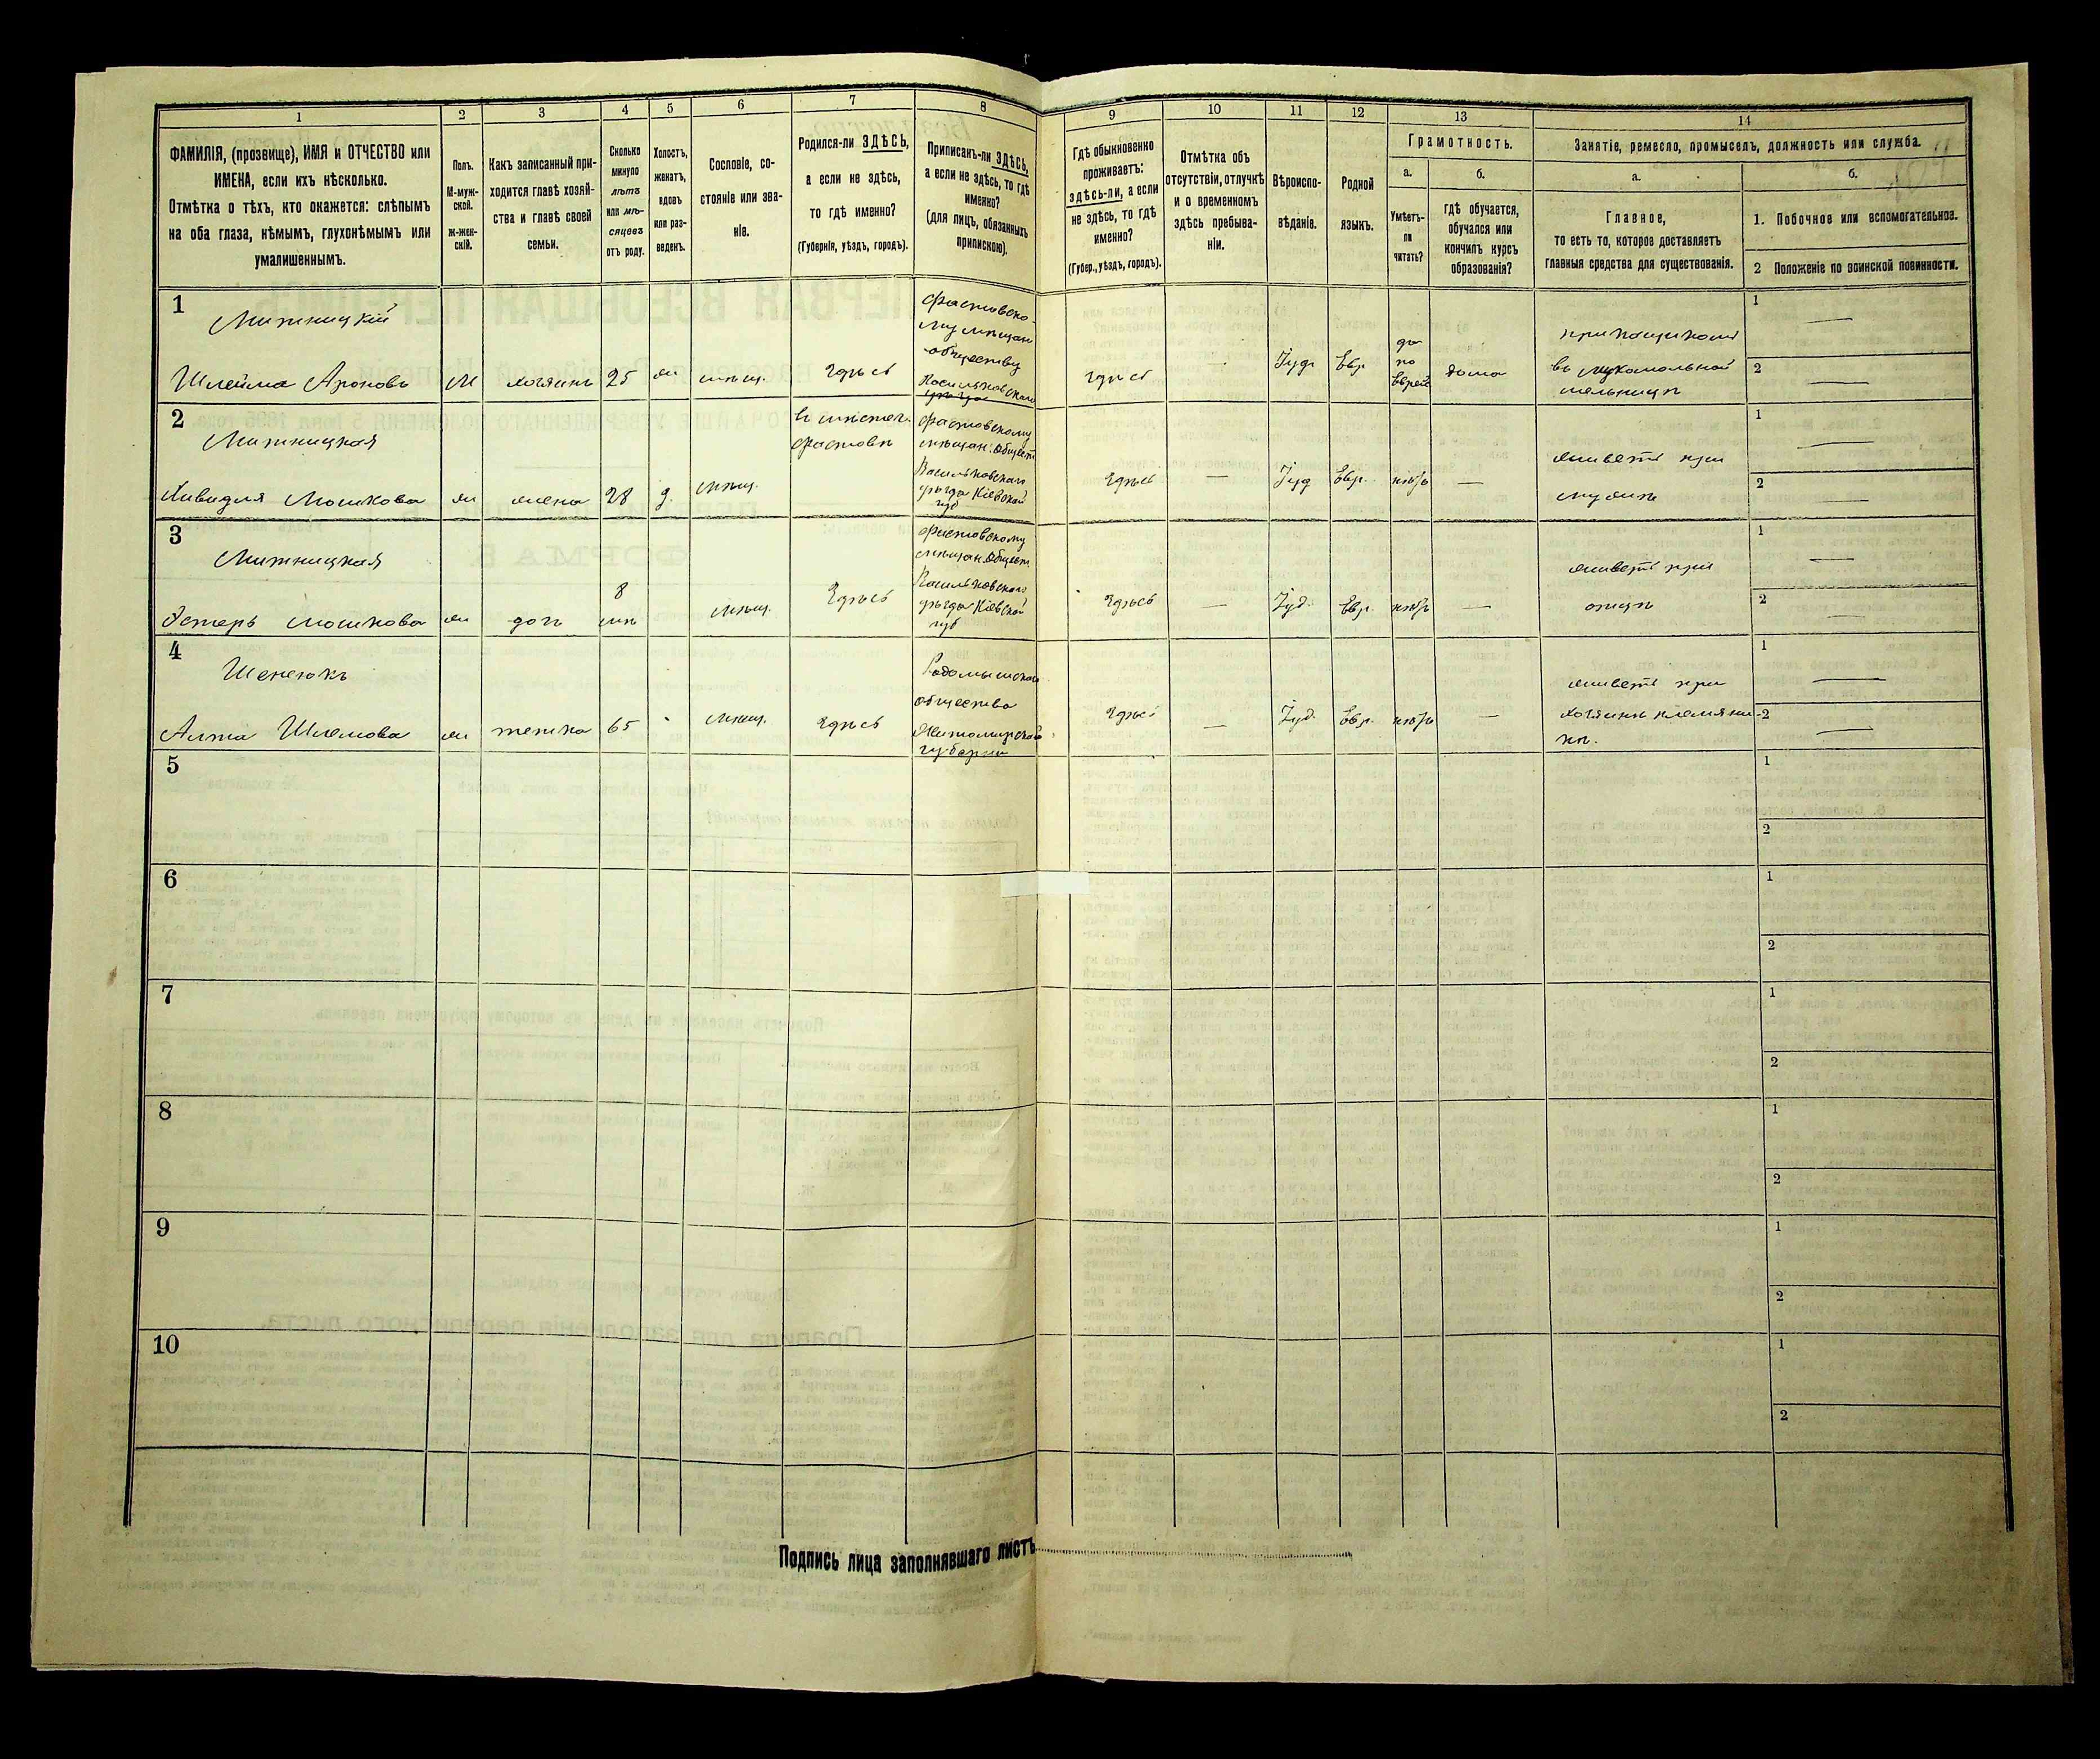 1 2 3 4 5 6 7 8 9 10 11 12 13 14
ФАМИЛІЯ, (прозвище), ИМЯ и ОТЧЕСТВО или
ИМЕНА, если ихъ нѣсколько.
Отмѣтка о тѣхъ, кто окажется: слѣпымъ
на оба глаза, нѣмымъ, глухонѣмымъ или
умалишеннымъ.
Полъ.
М-муж-
ской.
ж-жен-
скій.
Какъ записанный при-
ходится главѣ хозяй-
ства и главѣ своей
семьи.
Сколько
минуло
лѣтъ
или мѣ-
сяцевъ
отъ роду.
Холостъ,
женатъ,
вдовъ
или раз-
веденъ.
Сословіе, со-
стояніе или зва-
ніе.
Родился-ли ЗДѢСЬ,
а если не здѣсь,
то гдѣ именно?
(Губернія, уѣздъ, городъ).
Приписанъ-ли ЗДѢСЬ,
а если не здѣсь, то гдѣ
именно?
(для лицъ, обязанныхъ
припискою).
Гдѣ обыкновенно
проживаетъ:
здѣсь-ли, а если
не здѣсь, то гдѣ
именно?
(Губер., уѣздъ, городъ).
Отмѣтка объ
отсутствіи, отлучкѣ
и о временномъ
здѣсь пребыва-
ніи.
Вѣроиспо-
вѣданіе.
Родной
языкъ.
Грамотность.
а.
Умѣетъ-
ли
читать?
б.
гдѣ обучается,
обучался или
кончилъ курсъ
образованія?
Занятіе, ремесло, промыселъ, должность или служба.
а.
Главное,
то есть то, которое доставляетъ
главныя средства для существованія.
б.
1. Побочное или вспомогательное.
2 Положеніе по воинской повинности.
1
Шлейма Ароновъ М хозяинъ 25 ж мѣщ. Здѣсь
Фастовско-
му мѣщан
обществу
Васильковскаго
уѣзда
здѣсь — Іуд. Евр.
да
по
Еврей
дома
прикащикомъ
въ мукомольной
мельницѣ
1 —
2 —
2
Мошкова ж жена 28 з. мѣщ.
въ мѣстеч.
Фастовѣ
Фастовскому
мѣщан. Общест
Васильковскаго
уѣзда Кіевской
губ
Здѣсь Іуд Евр. нѣтъ —
живетъ при
мужѣ
1 —
2 —
3
Эстеръ Мошкова ж дочь
8
мѣ
мѣщ. Здѣсь
Фастовскому
мѣщан. Общест
Васильковскаго
уѣзда Кіевской
губ
Здѣсь — Іуд. Евр. нѣтъ —
живетъ при
отцѣ
1 —
2 —
4
Шлемова ж тетка 65 мѣщ. Здѣсь
Радомысльскаго
общества
Житомирской
губерніи
Здѣсь — Іуд. Евр. нѣтъ —
живетъ при
хозяинѣ племянни-
кѣ.
1 —
2 —
5 1
2
6 1
2
7 1
2
8 1
2
9 1
2
10 1
2
Подпись лица заполнявшаго листъ